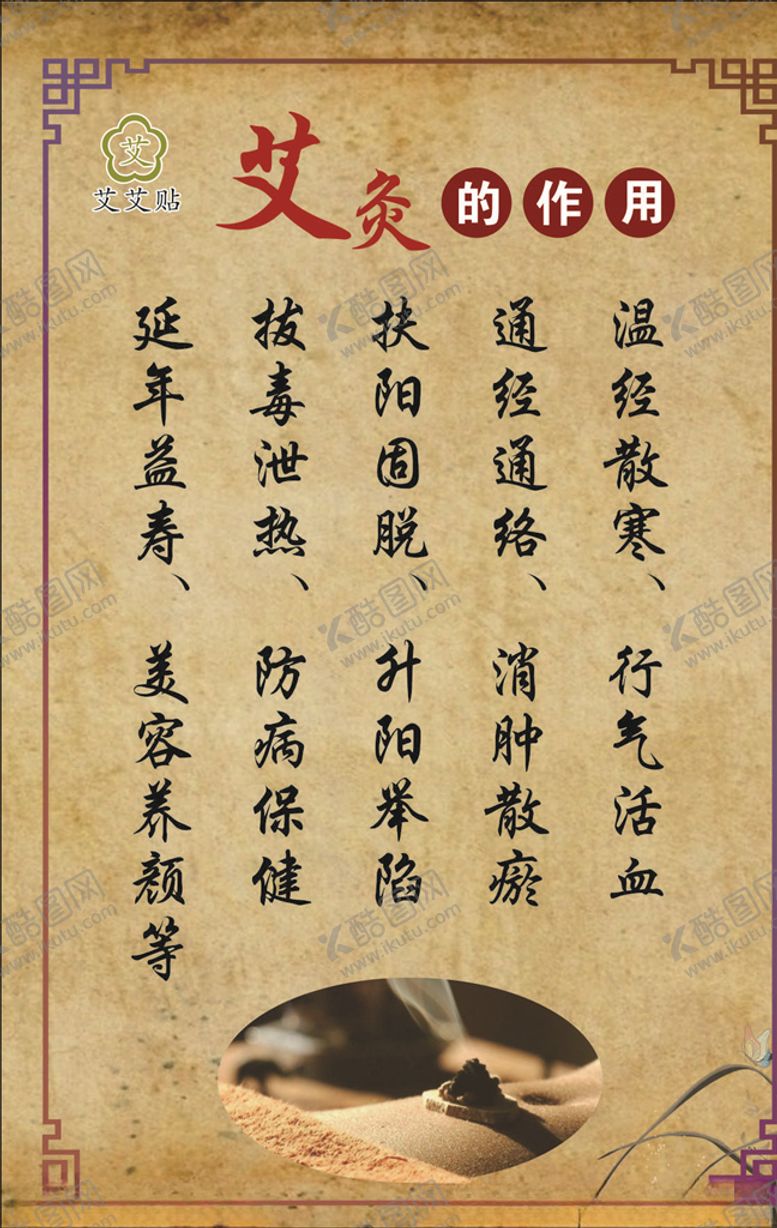 艾
艾艾贴
艾灸的作用
温经散寒、行气活血
通经通络、消肿散瘀
扶阳固脱、升阳举陷
拔毒泄热、防病保健
延年益寿、美容养颜等
酷图网
www.ikutu.com